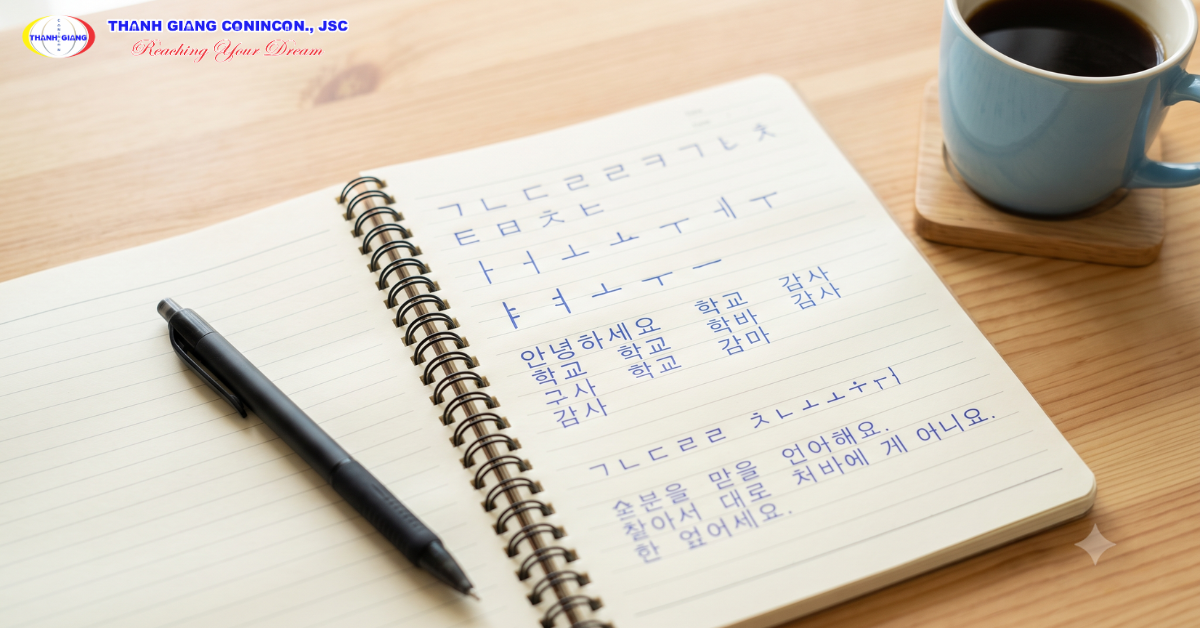 THANH GIANG CONINCON., JSC
Reaching Your Dream
THANH GIANG
CONINCON
ㄱ ㄴ ㄷ ㄹ ㄹ ㅋ ㄱ ㅊ
ㅌ ㅁ ㅊ ㅌ
ㅏ ㅓ ㅗ ㅛ ㅜ ㅔ ㅜ
ㅑ ㅕ ㅗ ㅜ ㅡ
안녕하세요 학교 감사
학교 학교 학바 감사
구사 학교 감마
감사
ㄱ ㄴ ㄷ ㄹ ㄹ ㅊ ㄴ ㅗ ㅗ
숮분을 맏을 언아해요.
찰아서 대로 처바에 게 어니요.
한 엎어세요.